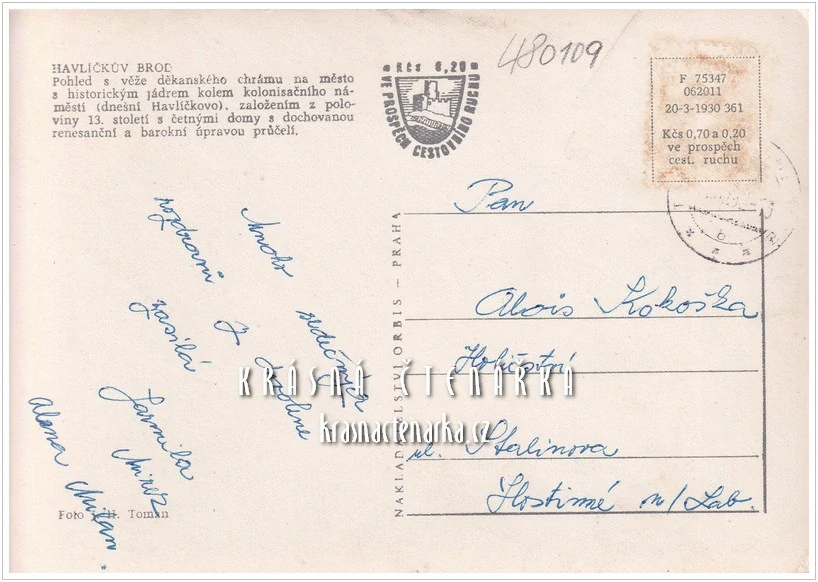 HAVLÍČKŮV BROD
Pohled s věže děkanského chrámu na město
s historickým jádrem kolem kolonisačního ná-
městí (dnešní Havlíčkovo), založením z polo-
viny 13. století s četnými domy s dochovanou
renesanční a barokní úpravou průčelí.
Kčs 0,20
VE PROSPĚCH CESTOVNÍHO RUCHU
480109
F 75347
062011
20-3-1930 361
Kčs 0,70 a 0,20
ve prospěch
cest. ruchu
Mnoho srdečných
pozdravů z dovolené
zasílá
Jarmila
Mirek
Alena Milan.
NAKLADATELSTVÍ ORBIS — PRAHA
Pan
Alois Kokoška
Holičství
ul. Stalinova
Hostinné n/Lab.
KRÁSNÁ ČTENÁŘKA
krasnactenarka.cz
Foto J. H. Toman